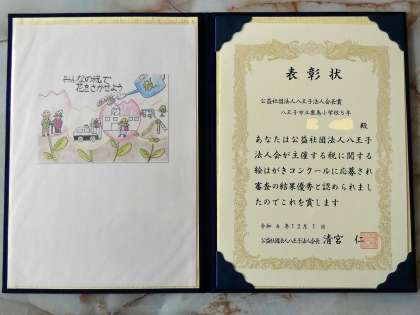 みんなの税で
花をさかせよう
税
表彰状
公益社団法人八王子法人会長賞
八王子市立鹿島小学校5年
殿
あなたは公益社団法人八王子
法人会が主催する税に関する
絵はがきコンクールに応募され
審査の結果優秀と認められまし
たのでこれを賞します
令和4年12月1日
公益社団法人八王子法人会長 清宮 仁